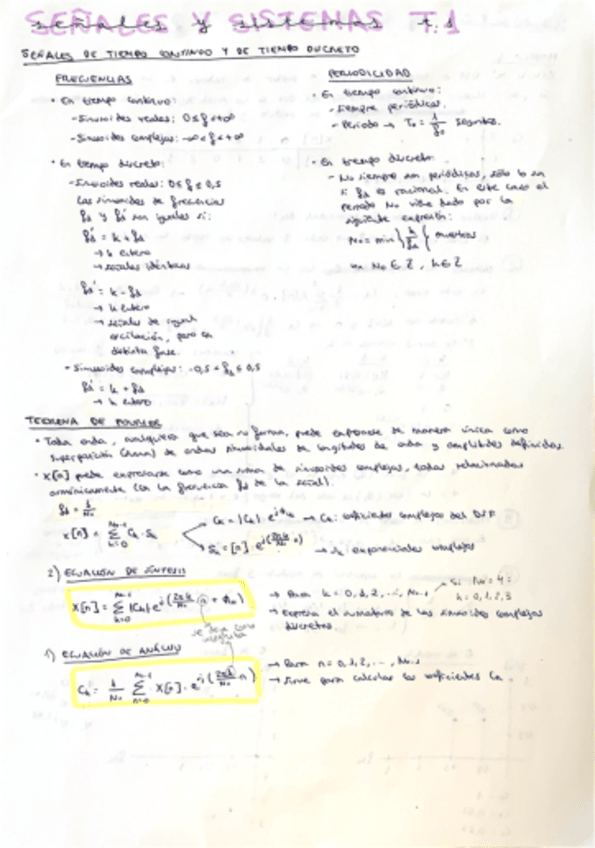 SEÑALES Y SISTEMAS T.1
señales y sistemas t.1
SEÑALES DE TIEMPO CONTINUO Y DE TIEMPO DISCRETO
FRECUENCIAS
• En tiempo continuo:
- Sinusoides reales: 0 ≤ f < +∞
- Sinusoides complejas: -∞ < f < +∞
• En tiempo discreto:
- Sinusoides reales: 0 ≤ f ≤ 0,5
Las sinusoides de frecuencias
fd y fd' son iguales si:
fd' = k + fd
→ k entero
→ señales idénticas
fd' = k - fd
→ k entero
→ señales de igual
oscilación, pero con
distinta fase.
- Sinusoides complejas: -0,5 < fd ≤ 0,5
fd' = k + fd
→ k entero
PERIODICIDAD
• En tiempo continuo:
- Siempre periódicas.
- Periodo → T₀ = 1/f₀ segundos.
• En tiempo discreto:
- No siempre son periódicas, sólo lo son
si fd es racional. En este caso el
periodo N₀ viene dado por la
siguiente expresión:
N₀ = min { k/fd } muestras
N₀ ∈ Z, k ∈ Z
TEOREMA DE FOURIER
• Toda onda, cualquiera que sea su forma, puede expresarse de manera única como
superposición (suma) de ondas sinusoidales de longitudes de onda y amplitudes definidas.
• x[n] puede expresarse como una suma de sinusoides complejas, todas relacionadas
armónicamente (con la frecuencia fd de la señal).
fd = 1/N₀
x[n] = Σ(k=0, N₀-1) Ck · Sk
Ck = |Ck| · e^jϕk → Ck: coeficientes complejos del DSF
Sk = [n] · e^j(2πk/N₀ n) → Sk: exponenciales complejas
2) ECUACIÓN DE SÍNTESIS
x[n] = Σ(k=0, N₀-1) |Ck| · e^j(2πk/N₀ n + ϕk)
→ Para k = 0, 1, 2, ..., N₀-1
Si N₀ = 4:
k = 0, 1, 2, 3
→ Expresa el sumatorio de las sinusoides complejas
discretas.
se deja como
incógnita
1) ECUACIÓN DE ANÁLISIS
Ck = 1/N₀ Σ(n=0, N₀-1) x[n] · e^-j(2πk/N₀ n)
→ Para n = 0, 1, 2, ..., N₀-1
→ Sirve para calcular los coeficientes Ck.